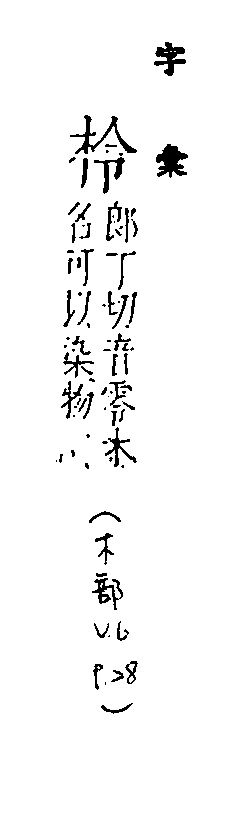 字彙
柃
郎丁切音零木
名可以染物
(木部
V.6
P.28)